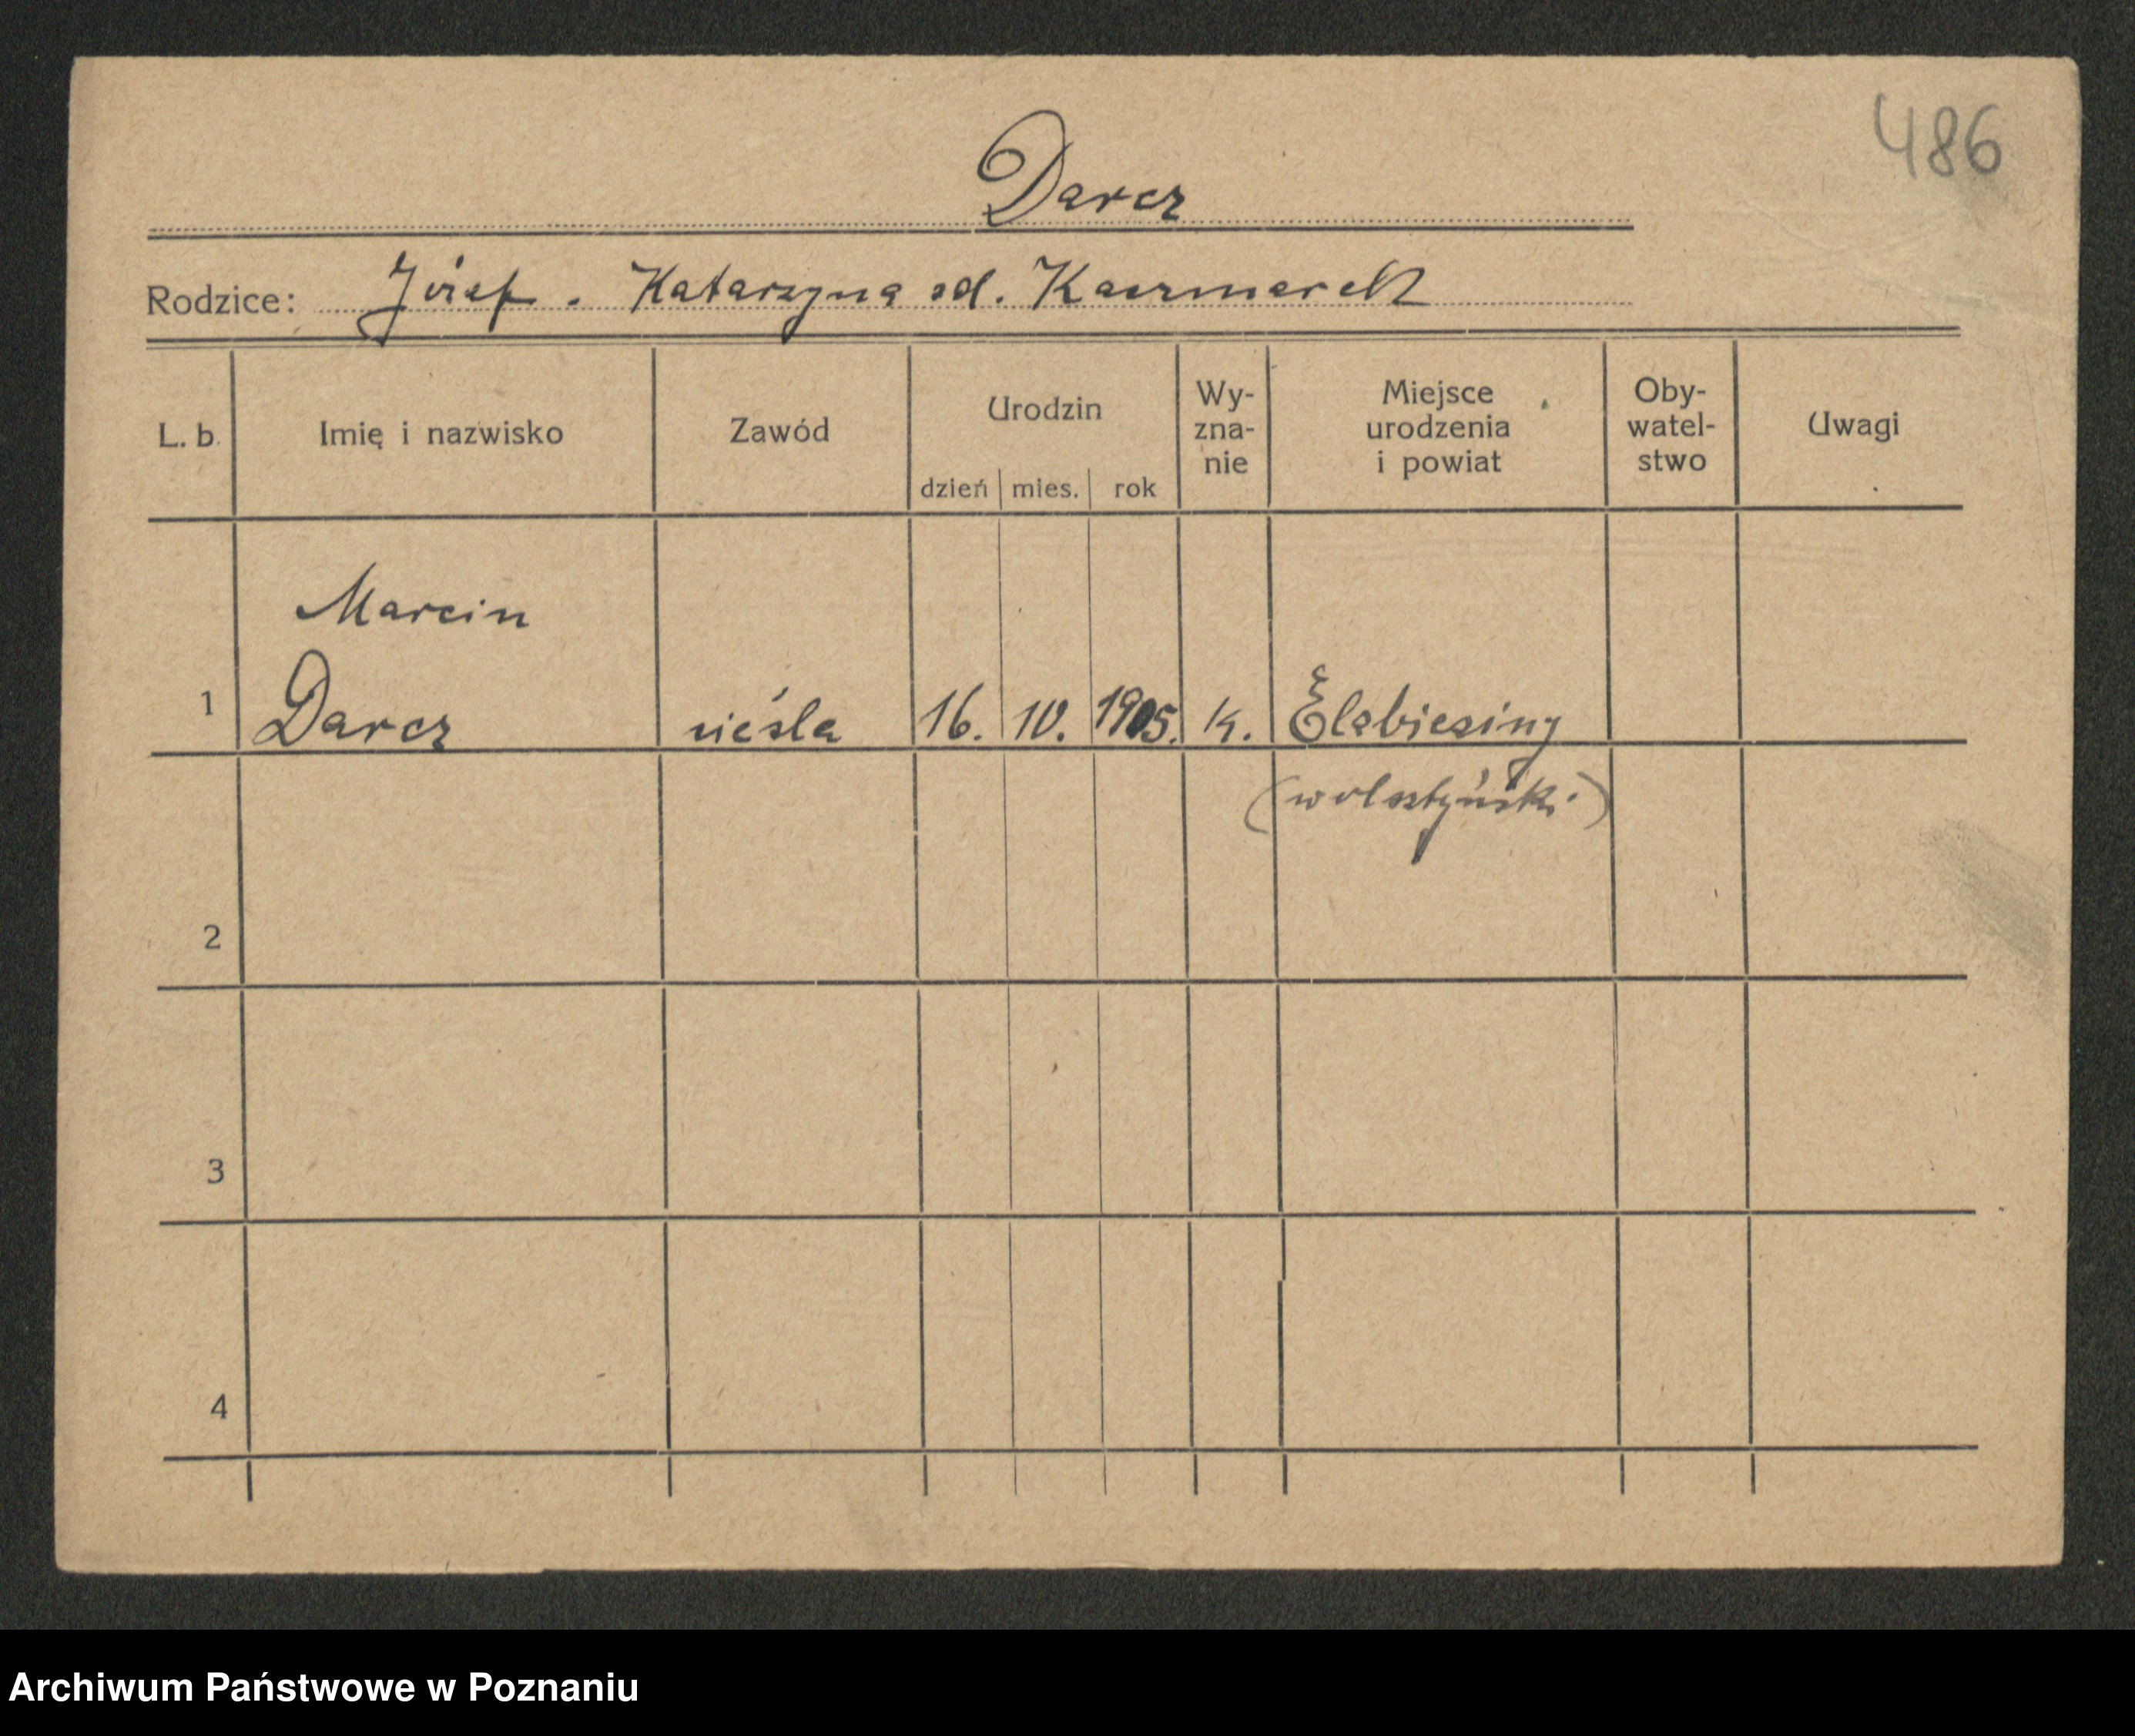 486
Darcz
Rodzice: Józef. Katarzyna zd. Kaczmarek
L. b. Imię i nazwisko Zawód Urodzin dzień mies. rok Wy- zna- nie Miejsce urodzenia i powiat Oby- watel- stwo Uwagi
Marcin
1 Darcz cieśla 16. 10. 1905. k.
(wolsztyński)
2
3
4
Archiwum Państwowe w Poznaniu